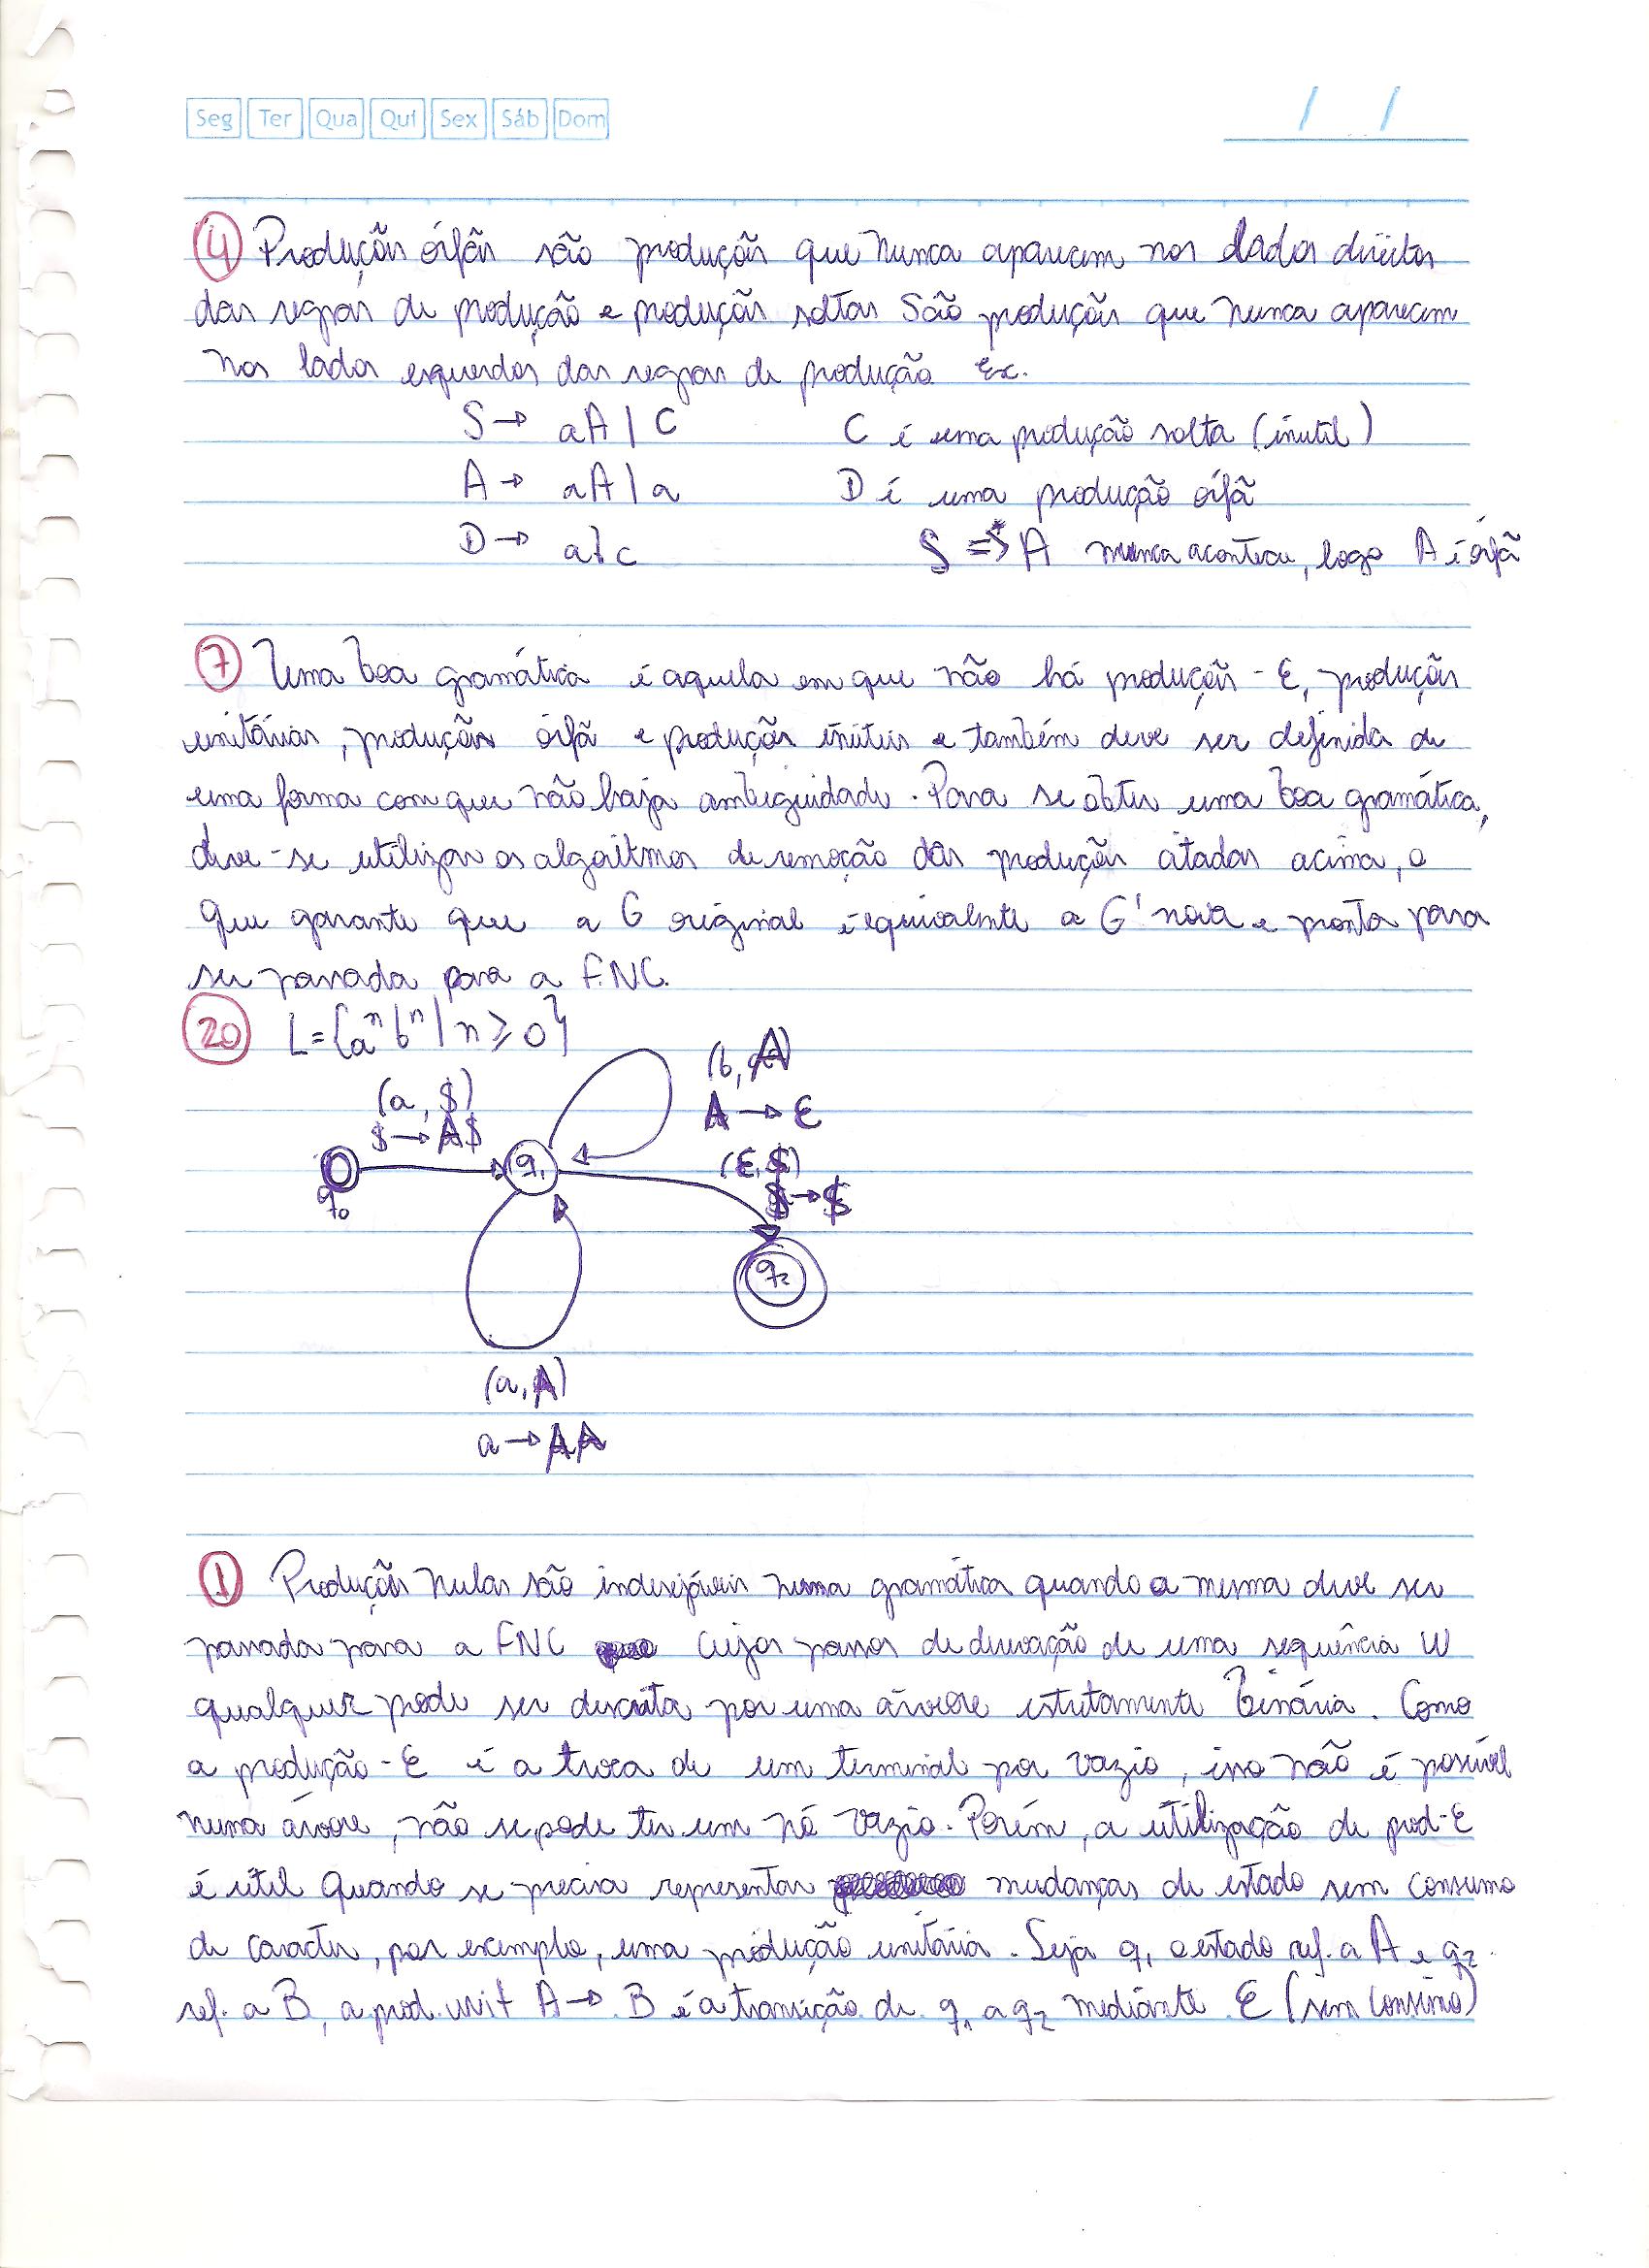 Seg Ter Qua Qui Sex Sáb Dom / /
4 Produções órfãs são produções que nunca aparecem nos lados direitos
das regras de produção e produções soltas são produções que nunca aparecem
nos lados esquerdos das regras de produção. Ex.
S → aA | C C é uma produção solta (inutil)
A → aA | a D é uma produção órfã
D → a | c S ⇒* A nunca acontece, logo A é órfã
7 Uma boa gramática é aquela em que não há produções-ε, produções
unitárias, produções órfã e produções inúteis e também deve ser definida de
uma forma com que não haja ambiguidade. Para se obter uma boa gramática,
deve-se utilizar os algoritmos de remoção das produções citadas acima, o
que garante que a G original é equivalente a G' nova e pronta para
ser passada para a FNC.
20 L = {aⁿbⁿ | n ≥ 0}
(b, A)
(a, $) A → ε
$ → A$
(ε, $)
q₁
$ → $
q₀
q₂
(a, A)
a → AA
1 Produções nulas são indesejáveis numa gramática quando a mesma deve ser
passada para a FNC cujos passos de derivação de uma sequência W
qualquer pode ser descrita por uma árvore estritamente binária. Como
a produção-ε é a troca de um terminal por vazio, isso não é possível
numa árvore, não se pode ter um nó vazio. Porém, a utilização de prod-ε
é útil quando se precisa representar mudanças de estado sem consumo
de caracter, por exemplo, uma produção unitária. Seja q₁ o estado ref. a A e q₂
ref. a B, a prod. unit A → B é a transição de q₁ a q₂ mediante ε (sem consumo)